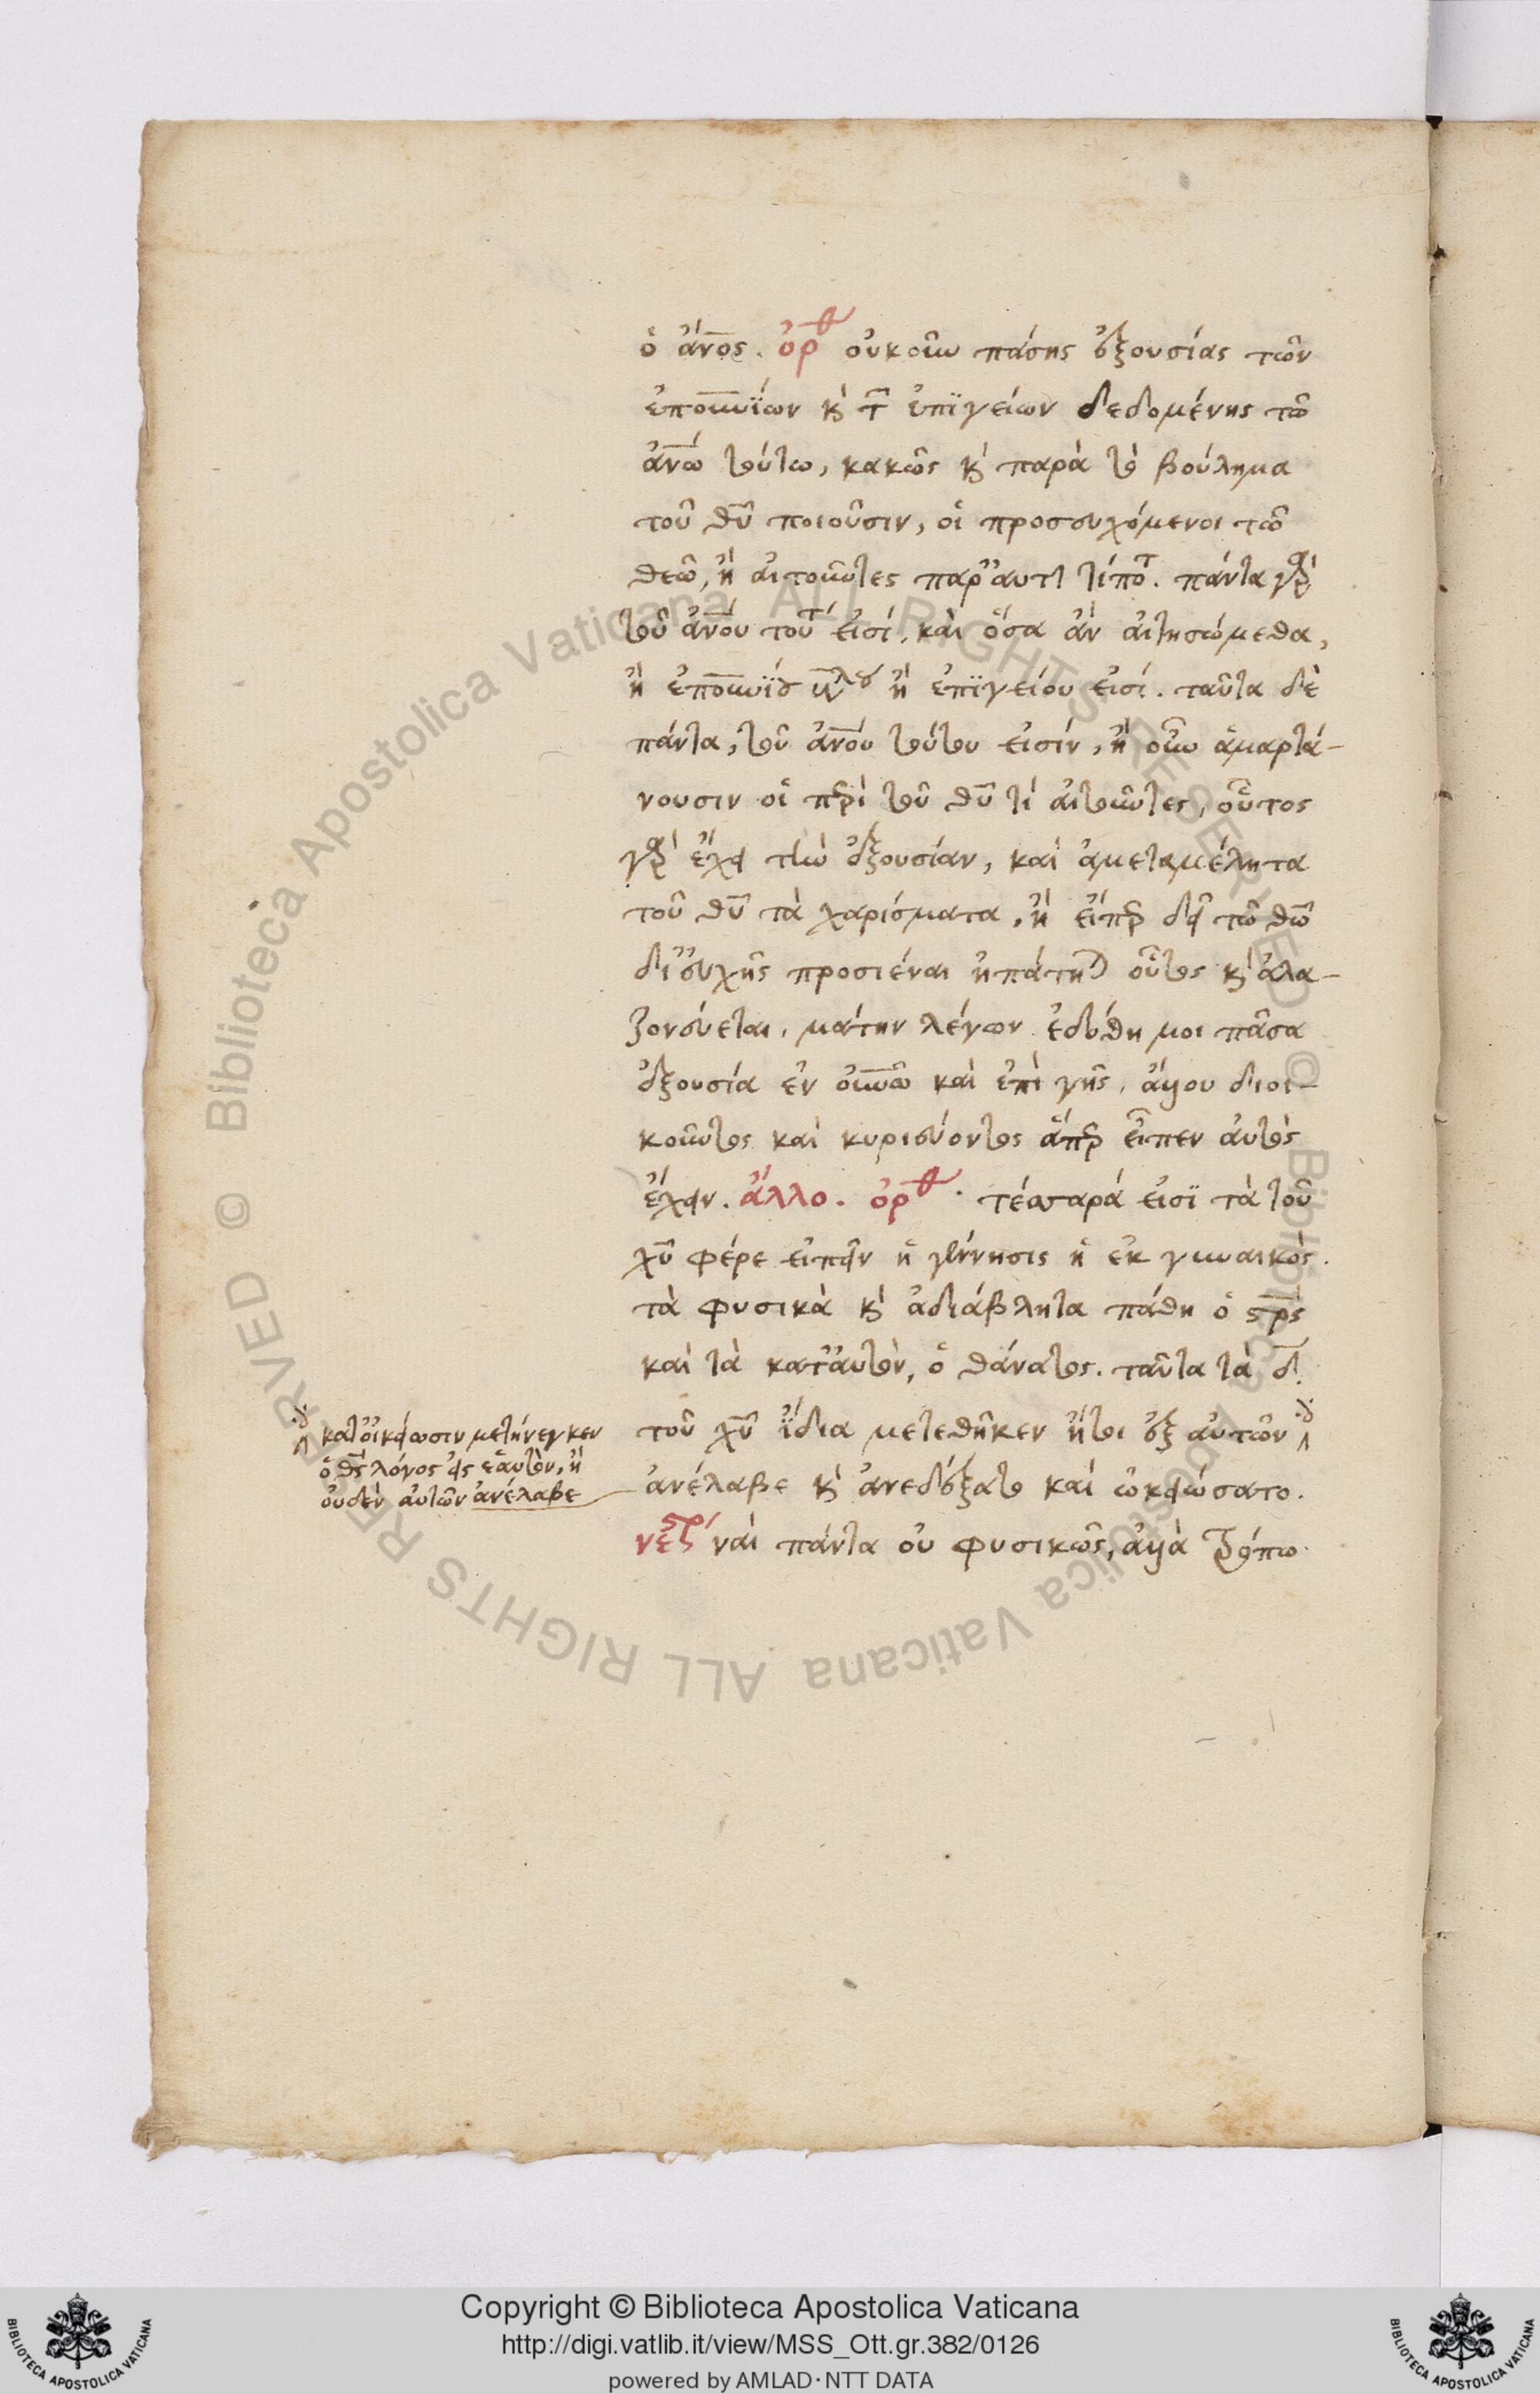 ὁ ἄν̅ο̅ς. ὀρθ οὐκοῦν πάσης ἐξουσίας τῶν
ἐπουν̅ΐων κ̀ τ̅ ἐπϊγείων δεδομένης τῶ
ἀν̅ώ τούτω, κακῶς κ̀ παρὰ τὸ βούλημα
τοῦ θυ̅ ποιοῦσιν, οἱ προσευχόμενοι τῶ
θεῶ, ἢ αἰτοῦντες παρ' αυτ τίποτ. πάντα γὰρ
τοῦ ἀν̅ου τουτ εἰσί, καὶ ὅσα ἂν αἰτησώμεθα,
ἢ ἐπουν̅ΐου ἢ ἐπϊγείου εἰσί. ταῦτα δὲ
πάντα, τοῦ ἀν̅ου τούτου εἰσίν, ἢ οὖν ἁμαρτά-
νουσιν οἱ π̅ρ̅ὶ τοῦ θυ̅ τί αἰτοῦντες, οὗτος
γὰρ ἔχει τὴν ἐξουσίαν, καὶ ἀμεταμέλητα
τοῦ θυ̅ τὰ χαρίσματα, ἢ εἴπερ δεῖ τῶ θω̅
δι' εὐχῆς προσιέναι ἠπάτηται οὗτος κ̀ ἀλα-
ζονεύεται, μάτην λέγων ἐδόθη μοι πᾶσα
ἐξουσία ἐν οὐν̅ῶ καὶ ἐπὶ γῆς, ἄλλου διοι-
κοῦντος καὶ κυριεύοντος ἅπερ εἶπεν αὐτὸς
ἔχειν. ἄλλο. ὀρθ. τέσσαρά εἰσϊ τὰ τοῦ
χυ̅ φέρε εἰπεῖν ἡ γέννησις ἡ ἐκ γυναικός.
τὰ φυσικὰ κ̀ ἀδιάβλητα πάθη ὁ σ̅ρ̅ς
καὶ τὰ κατ' αὐτὸν, ὁ θάνατος. ταῦτα τὰ δ̅.
τοῦ χυ̅ ἴδια μετεθῆκεν ἤτοι ἐξ αὐτῶν
ἀνέλαβε κ̀ ἀνεδέξατο καὶ ὠκειώσατο.
νεστ ναὶ πάντα οὐ φυσικῶς, ἀλλὰ τρόπω
κατ' οἰκείωσιν μετήνεγκεν
ὁ θ̅ς λόγος εἰς ἑαυτὸν, ἢ
οὐδὲν αὐτῶν ἀνέλαβε
Copyright © Biblioteca Apostolica Vaticana
http://digi.vatlib.it/view/MSS_Ott.gr.382/0126
powered by AMLAD · NTT DATA